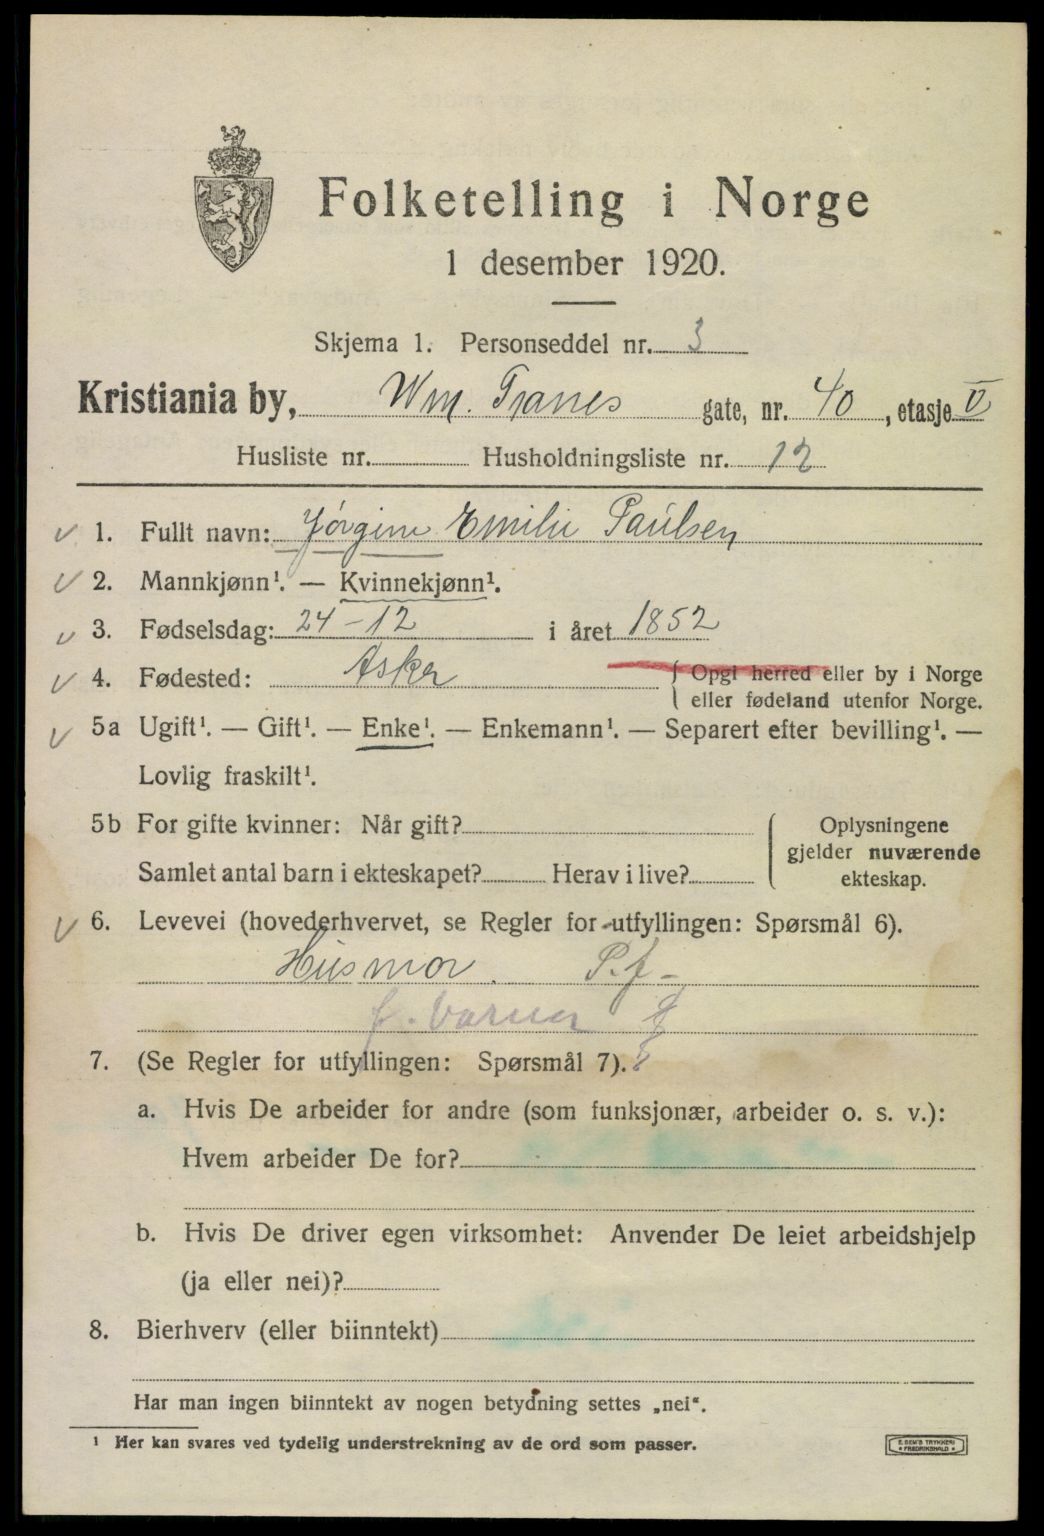 Folketelling i Norge
1 desember 1920.
Skjema 1. Personseddel nr. 3
Kristiania by, Wm. Tranes gate, nr. 40, etasje V
Husliste nr. Husholdningsliste nr. 12
1. Fullt navn: Jørgine Emilie Paulsen
2. Mannkjønn¹. — Kvinnekjønn¹.
3. Fødselsdag: 24-12 i året 1852
4. Fødested: Asker { Opgi herred eller by i Norge
eller fødeland utenfor Norge.
5a Ugift¹. — Gift¹. — Enke¹. — Enkemann¹. — Separert efter bevilling¹. —
Lovlig fraskilt¹.
5b For gifte kvinner: Når gift? { Oplysningene
gjelder nuværende
Samlet antal barn i ekteskapet? Herav i live? ekteskap.
6. Levevei (hovederhvervet, se Regler for utfyllingen: Spørsmål 6).
Husmor. P. f -
7. (Se Regler for utfyllingen: Spørsmål 7).
a. Hvis De arbeider for andre (som funksjonær, arbeider o. s. v.):
Hvem arbeider De for?
b. Hvis De driver egen virksomhet: Anvender De leiet arbeidshjelp
(ja eller nei)?
8. Bierhverv (eller biinntekt)
Har man ingen biinntekt av nogen betydning settes „nei".
¹ Her kan svares ved tydelig understrekning av de ord som passer.
E. SEM'S TRYKKERI
FREDRIKSHALD